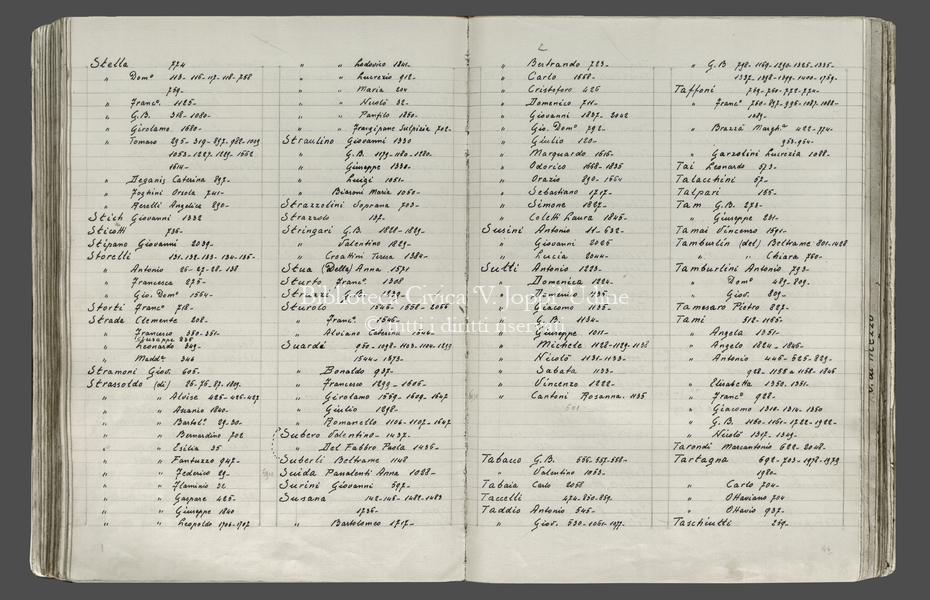 Stella 774
" Domº 113-116-117-118-758
769-
" Francº 1125-
" G.B. 318-1080-
" Girolamo 1680-
" Tomaso 295-319-897-982-1009
1053-1227-1229-1552
1614-
" Deganis Caterina 897-
" Foghini Orsola 741-
" Rerelli Angelica 890-
Stich Giovanni 1332
Sticotti 736-
Stipano Giovanni 2039-
Storelli 131-132-133-134-135-
" Antonio 26-27-28-138
" Francesca 275-
" Gio. Domº 1564-
Storti Francº 718-
Strade Clemente 208-
Francesco 350-351-
Giuseppe 836
" Leonardo 349-
" Maddª 346
Stramoni Giov. 605-
Strassoldo (di) 26-76-87-1809-
" " Alvise 425-426-427
" " Ascanio 1840-
" " Bartolº 29-30-
" " Bernardino 702
" " Ersilia 35
" " Fantuzzo 947-
" " Federico 29-
" " Flaminio 32
" " Gaspare 425-
" " Giuseppe 1840
" " Leopoldo 1906-1907
" " Lodovico 1841-
" " Lucrezio 912-
" " Maria 204
" " Nicolò 32-
" " Panfilo 1850-
" " Frangipane Sulpizia 702-
Straulino Giovanni 1330
" G.B. 1179-1180-1280-
" Giuseppe 1330-
" Luigi 1051-
" Biasoni Maria 1050-
Strazzolini Soprana 703-
Strazzolo 137-
Stringari G.B. 1828-1829-
" Valentino 1829-
" Croattini Teresa 1384-
Stua (Della) Anna 1571
Sturto Francº 1308
G.B. 1939-
Sturolo 1545-1556-2055-2056
" Francº 1545-
" Alviano Caterina
Suardi 950-1098-1103-1104-1299
1544-1573-
" Bonaldo 937-
" Francesco 1299-1606-
" Girolamo 1569-1609-1647
" Giulio 1298-
" Romanello 1106-1107-1647
Subero Valentino-1437-
" Del Fabbro Paola 1436-
Suberli Beltrame 1148
Suida Passalenti Anna 1028-
Surini Giovanni 597-
Susana 142-145-1482-1483
1736-
" Bartolomeo 1717-
2
" Bertrando 723-
" Carlo 1668-
" Cristoforo 426
" Domenico 711-
" Giovanni 1837-2002
" Gio. Domº 792-
" Giulio 120-
" Marquardo 1616-
" Odorico 1668-1835
" Orazio 890-1564
" Sebastiano 1717-
" Simone 1827-
" Coletti Laura 1845-
Susini Antonio 11-632-
" Giovanni 2026
" Lucia 2044-
Sutti Antonio 1223-
" Domenica 1224-
" Domenico 1135-
" Giacomo 1135-
" G.B. 1134-
" Giuseppe 1011-
" Michele 1128-1129-1138
" Nicolò 1131-1133-
" Sabata 1133-
" Vincenzo 1222-
" Cantoni Rosanna-1135
Tabacco G.B. 556-557-558-
" Valentino 1053-
Tabaia Carlo 2058
Taccelli 474-850-857-
Taddio Antonio 545-
" Giov. 530-1061-1177-
" G.B. 798-1169-1290-1325-1335-
1337-1398-1399-1400-1769-
Taffoni 759-760-772-774-
" Francº 760-897-996-1087-1088-
1089-
" Brazzà Marghª 422-774-
953-954-
" Garzolini Lucrezia 1088-
Tai Leonardo 573-
Talacchini 57-
Talpari 155-
Tam G.B. 273-
" Giuseppe 281-
Tamai Vincenzo 1591-
Tamburlin (del) Beltrame 801-1428
" " Chiara 760-
Tamburlini Antonio 793-
" Domº 489-809-
" Giov. 809-
Tamesaro Pietro 827-
Tami 512-1165-
" Angela 1351-
" Angelo 1824-1845-
" Antonio 446-525-829-
928-1155 a 1158-1845
" Elisabetta 1350-1351-
" Francº 928-
" Giacomo 1310-1314-1350
" G.B. 1160-1161-1722-1922-
" Nicolò 1347-1349-
Tarondi Marcantonio 622-2048-
Tartagna 692-703-1978-1979
1980-
" Carlo 704-
" Ottaviano 704
" Ottavio 937-
Taschiutti 259-
Biblioteca Civica 'V. Joppi' Udine
© tutti i diritti riservati